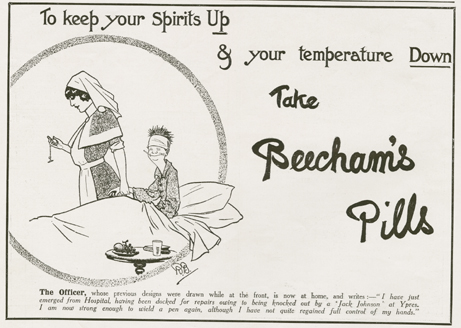 To keep your Spirits Up
& your temperature Down
Take
Beecham's
Pills
The Officer, whose previous designs were drawn while at the front, is now at home, and writes:—"I have just
emerged from Hospital, having been docked for repairs owing to being knocked out by a "Jack Johnson" at Ypres.
I am now strong enough to wield a pen again, although I have not quite regained full control of my hands."